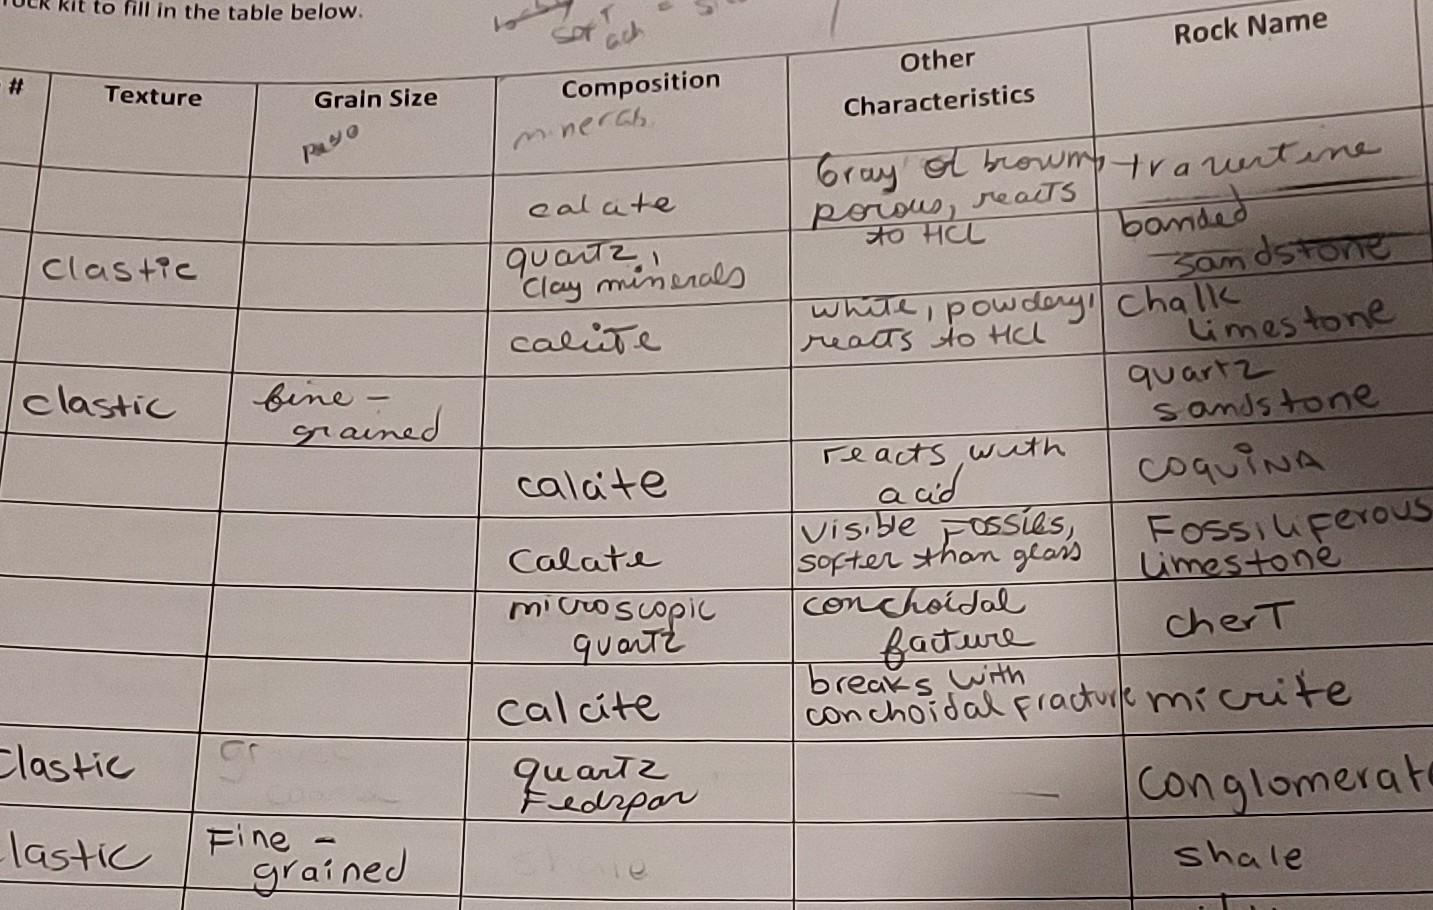 kit to fill in the table below.
# Texture Grain Size Composition Other Characteristics Rock Name
page minerals
calcite Gray or brown, porous, reacts to HCL travertine
clastic quartz, clay minerals banded sandstone
calcite white, powdery, reacts to HCl chalk limestone
clastic fine-grained quartz sandstone
calcite reacts with acid COQUINA
calcite visible Fossies, softer than glass Fossiliferous limestone
microscopic quartz conchoidal facture cherT
calcite breaks with conchoidal Fracture micrite
clastic quartz Fedspar — conglomerat
lastic Fine-grained shale